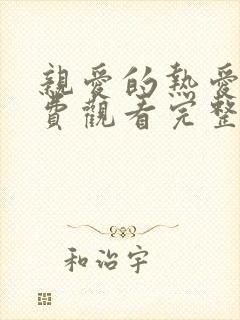 親愛的熱愛
費觀看完整
和治宇